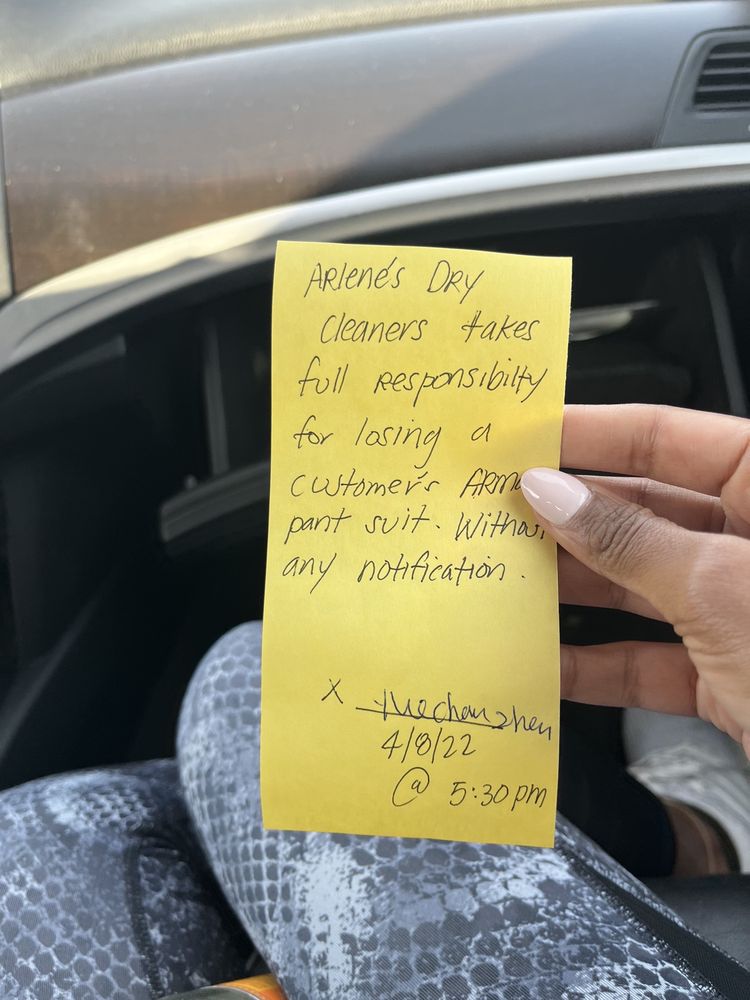 Arlene's Dry
Cleaners takes
full responsibilty
for losing a
customer's
pant suit. Without
any notification.
X
4/8/22
@ 5:30pm